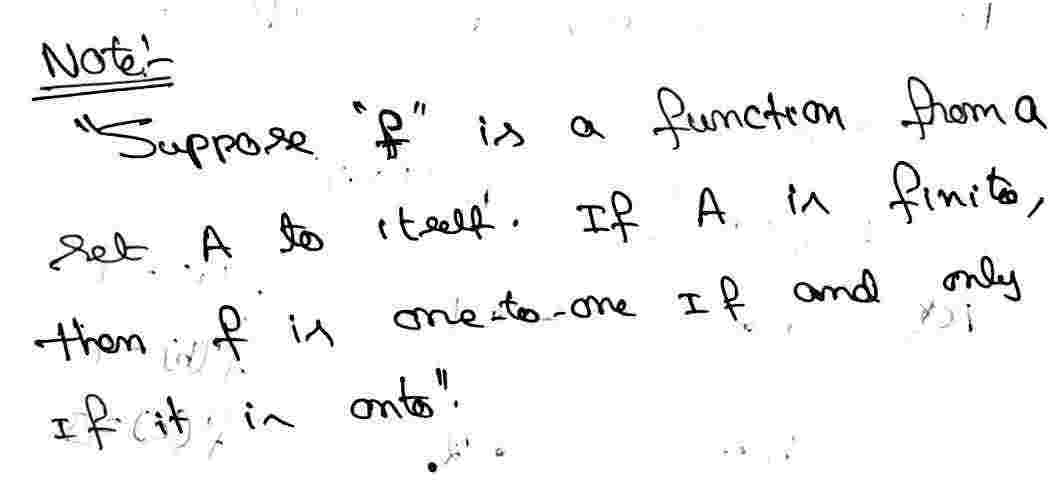 Note:-
"Suppose "f" is a function from a
set A to itself. If A is finite,
then f is one-to-one If and only
If it is onto".